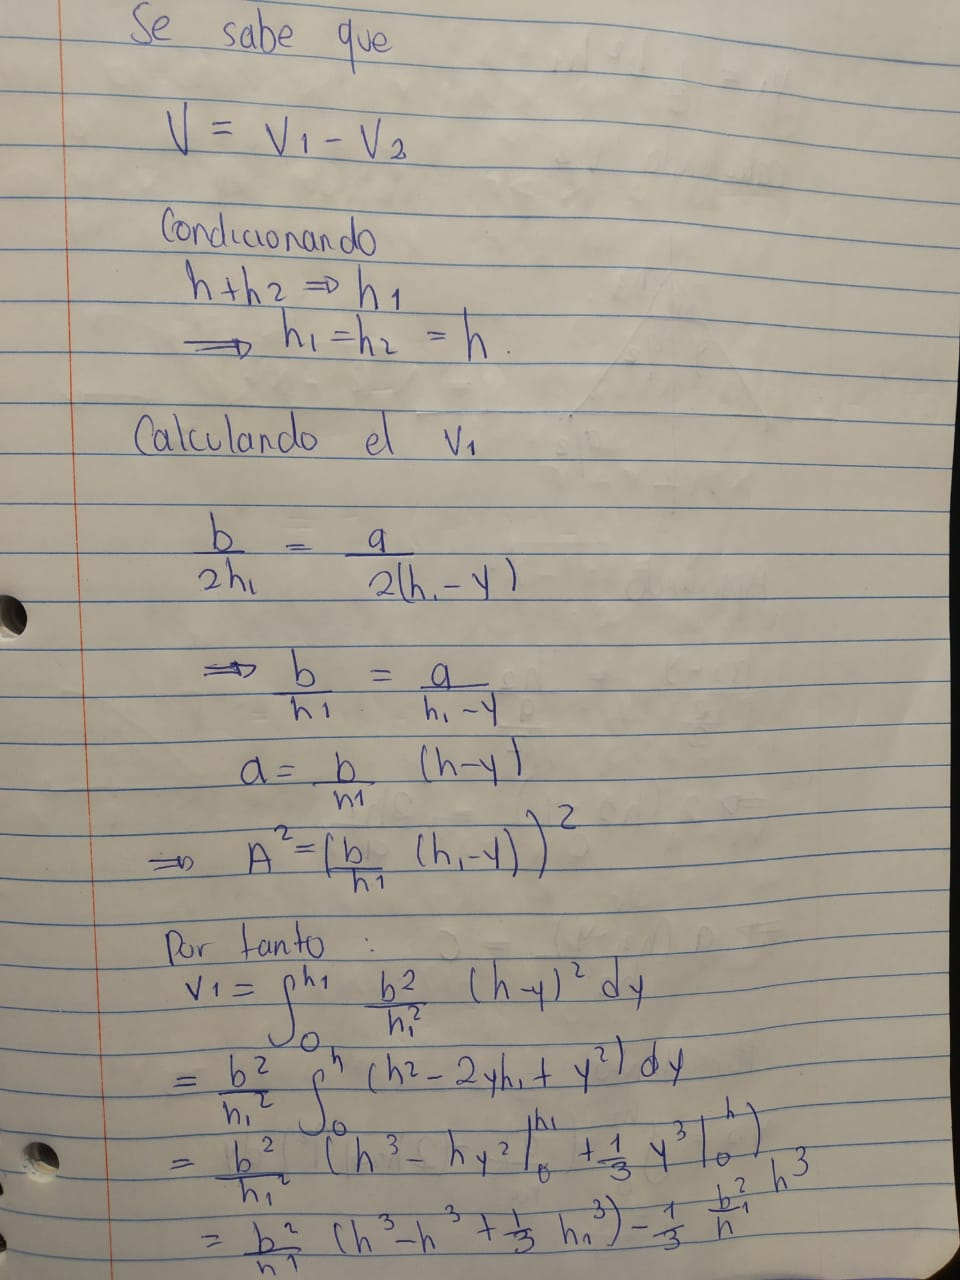 Se sabe que
V = V1 - V2
Condicionando
h + h2 ⇒ h1
⇒ h1 = h2 = h.
Calculando el V1
b/2h1 = a/2(h1 - y)
⇒ b/h1 = a/h1 - y
a = b/h1 (h-y)
⇒ A² = (b/h1 (h1-y))²
Por tanto :
V1 = ∫₀^h1 b²/h1² (h-y)² dy
= b²/h1² ∫₀^h (h² - 2yh1 + y²) dy
= b²/h1² (h³ - hy²|₀^h1 + 1/3 y³|₀^h)
= b²/h1 (h³ - h³ + 1/3 h1³) - 1/3 b²/h1 h³